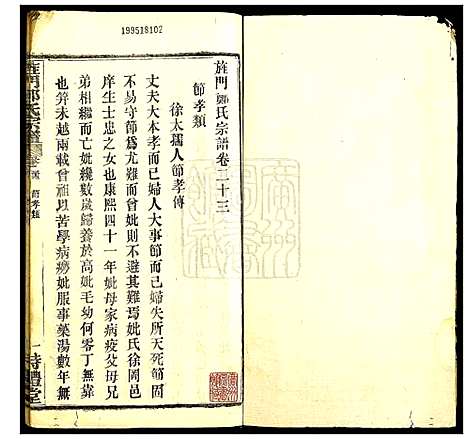 199518102
旌門鄭氏宗譜卷三十三
節孝類
徐太孺人節孝傳
丈夫大本孝而已婦人大事節而已婦失所天死節固
不易守節爲尤難而曾妣則不避其難焉妣氏徐岡邑
庠生士忠之女也康熙四十一年妣母家病疫父母兄
弟相繼而亡妣纔數歲歸養於高妣毛幼何零丁無靠
也笄未越兩載曾祖以苦學病癆妣服事藥湯數年無
旌門鄭氏宗譜
節孝類
一
詩禮堂